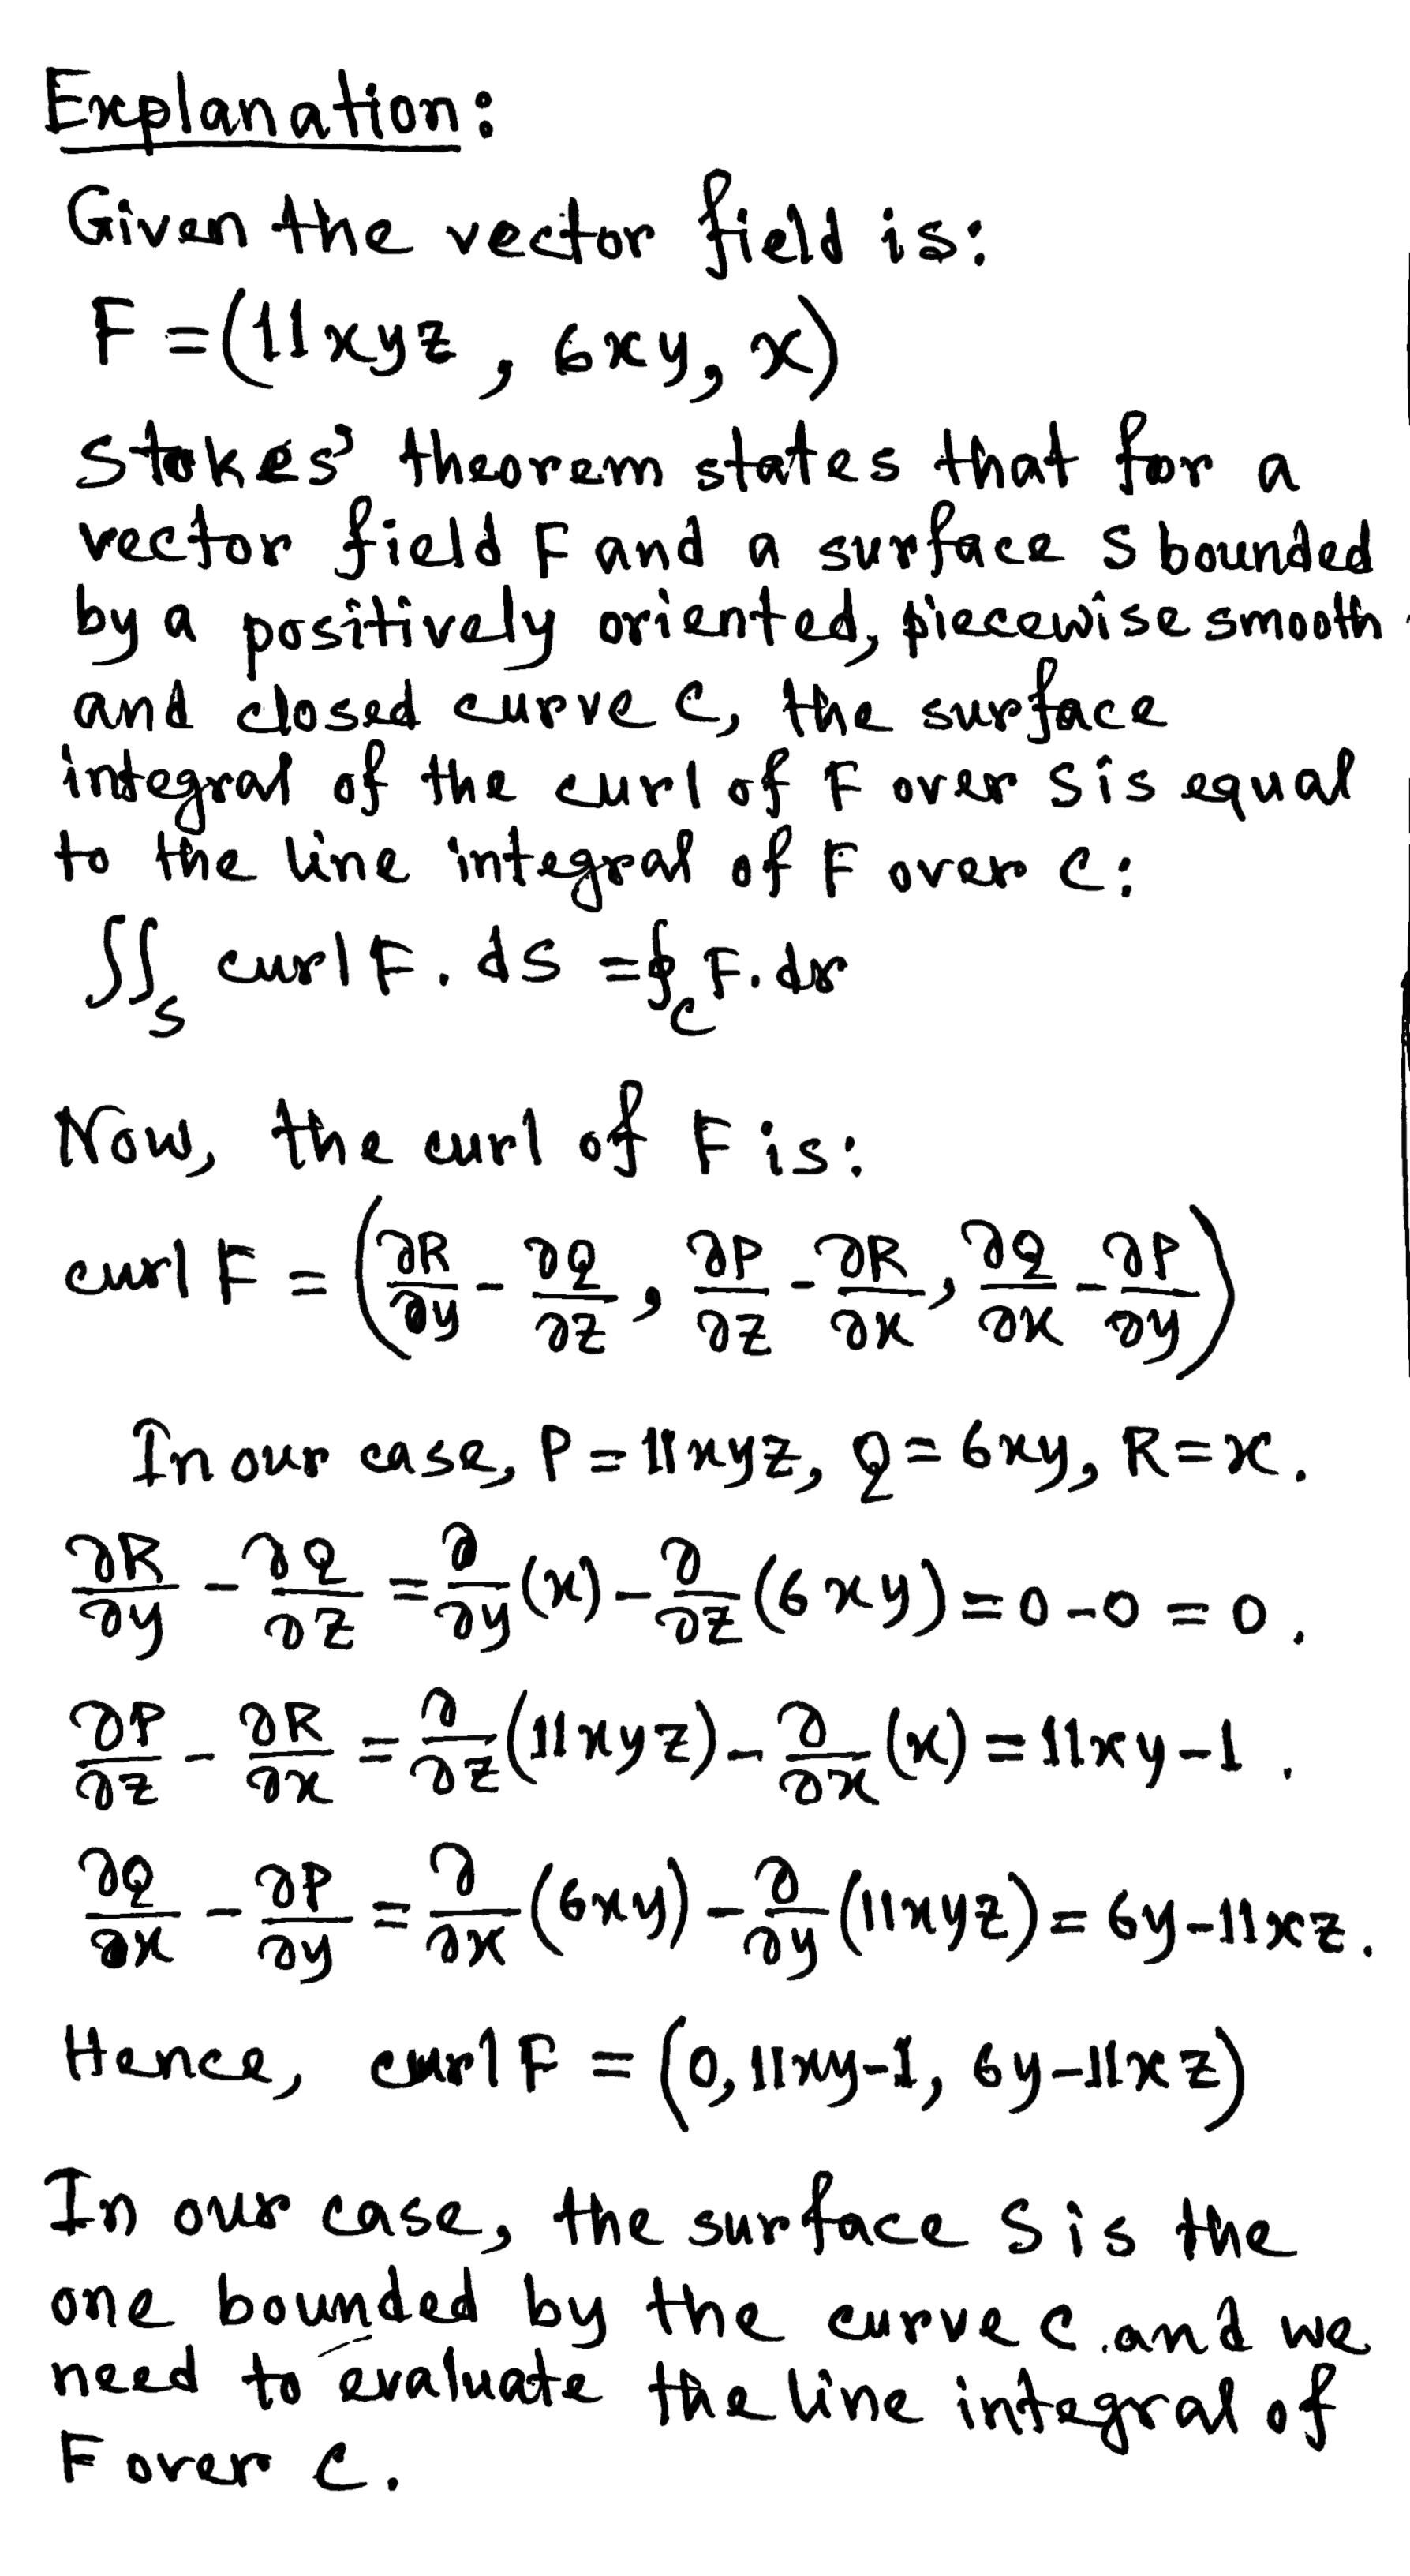 Explanation:
Given the vector field is:
F = (11xyz, 6xy, x)
Stokes' theorem states that for a
vector field F and a surface S bounded
by a positively oriented, piecewise smooth
and closed curve C, the surface
integral of the curl of F over S is equal
to the line integral of F over C:
∬_S curl F . dS = ∮_C F. dr
Now, the curl of F is:
curl F = (∂R/∂y - ∂Q/∂z, ∂P/∂z - ∂R/∂x, ∂Q/∂x - ∂P/∂y)
In our case, P = 11xyz, Q = 6xy, R = x.
∂R/∂y - ∂Q/∂z = ∂/∂y (x) - ∂/∂z (6xy) = 0 - 0 = 0.
∂P/∂z - ∂R/∂x = ∂/∂z (11xyz) - ∂/∂x (x) = 11xy - 1.
∂Q/∂x - ∂P/∂y = ∂/∂x (6xy) - ∂/∂y (11xyz) = 6y - 11xz.
Hence, curl F = (0, 11xy-1, 6y-11xz)
In our case, the surface S is the
one bounded by the curve C and we
need to evaluate the line integral of
F over C.